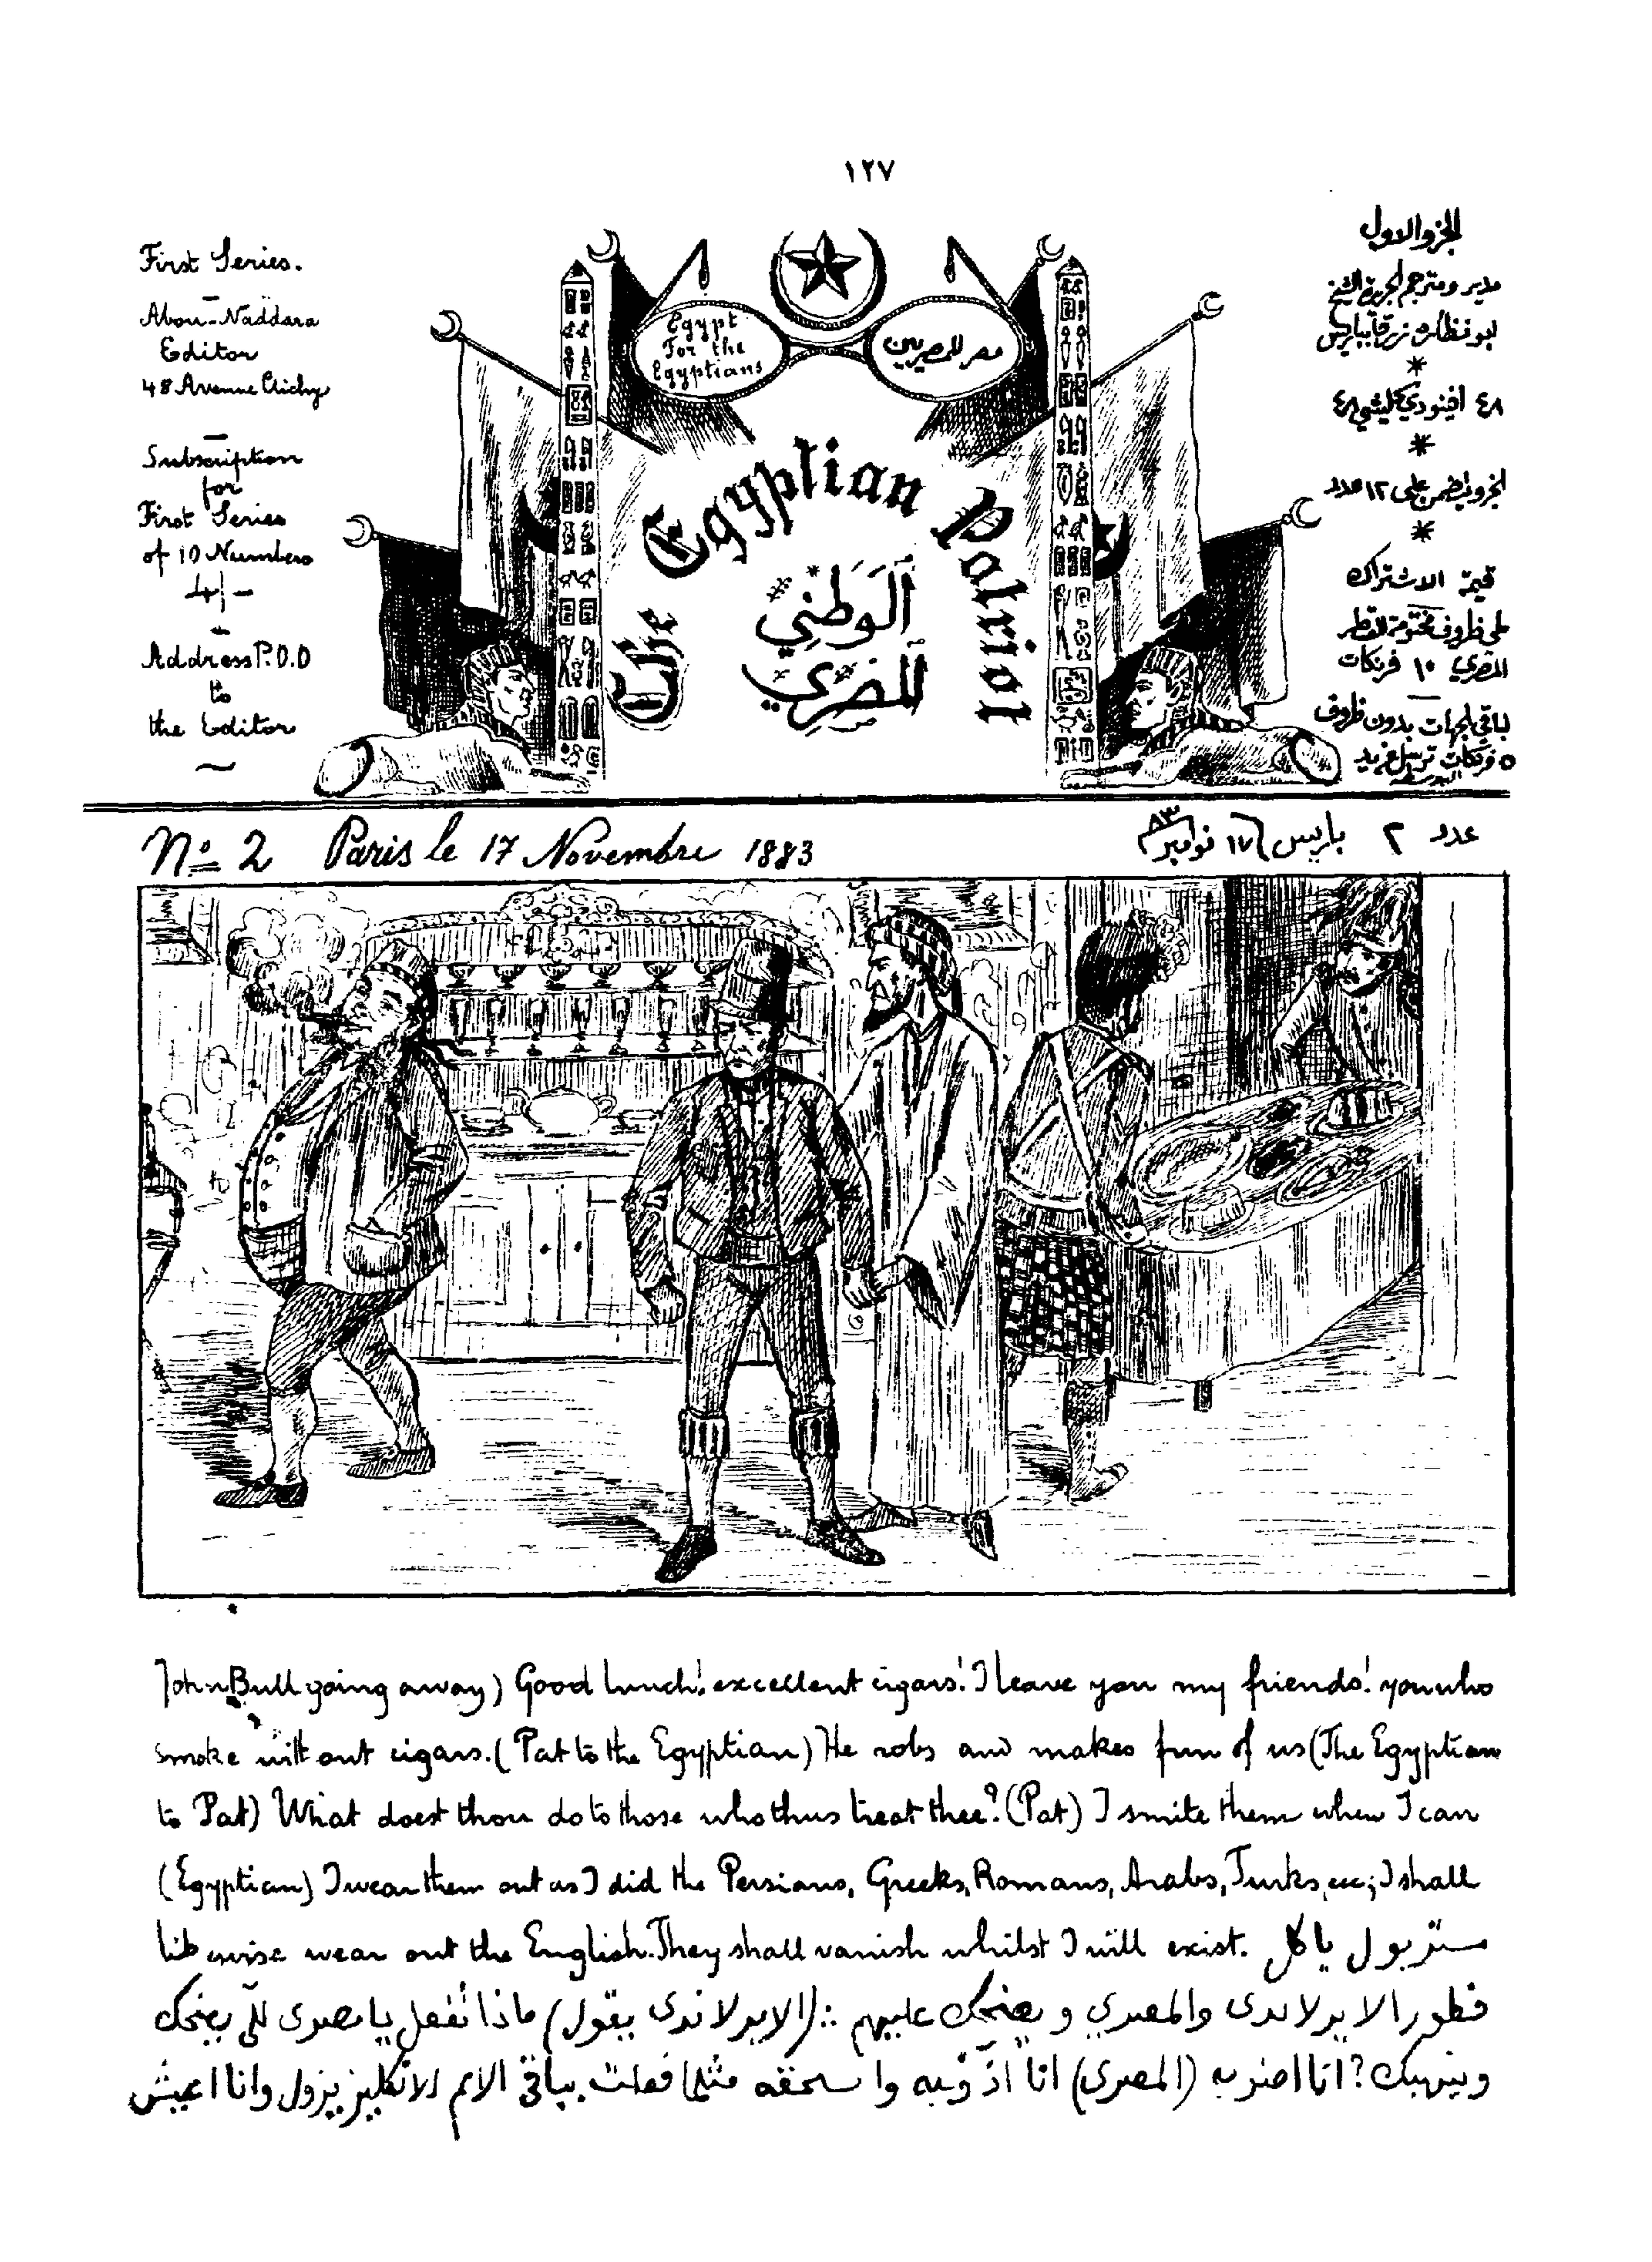 ١٢٧
First Series.
Abou-Naddara
Editor
48 Avenue Clichy
Subscription
for
First Series
of 10 Numbers
4/-
Address P.O.O
to
the Editor
Egypt
For the
Egyptians
مصر للمصريين
The Egyptian Patriot
اَلوَطَنِي
اَلمَصرِي
الجزو الاول
مدير ومترجم الجريدة الشيخ
ابو نظاره زرقا بباريس
*
٤٨ افينودي كليشي ٤٨
*
الجزو يتضمن على ١٢ عدد
*
قيمة الاشتراك
طي ظروف مختومة للقطر
المصري ١٠ فرنكات
لباقي الجهات بدون ظروف
٥ فرنكات ترسل
No 2 Paris le 17 Novembre 1883
عدد ٢ باريس ١٧ نوامبر ٨٣
John Bull going away) Good lunch! excellent cigars! I leave you my friends! you who
smoke without cigars. (Pat to the Egyptian) He robs and makes fun of us (The Egyptian
to Pat) What doest thou do to those who thus treat thee? (Pat) I smite them when I can
(Egyptian) I wear them out as I did the Persians, Greeks, Romans, Arabs, Turks, etc; I shall
likewise wear out the English. They shall vanish whilst I will exist. مستر بول ياكل
فطور الايرلاندى والمصري و يضحك عليهم :: (الايرلاندى يقول) ماذا تفعل يا مصرى للّي يضحك
وينهبك؟ انا اضربه (المصرى) انا اذوّبه واسحقه مثلما فعلت بباقي الامم الانكليز يزول وانا اعيش